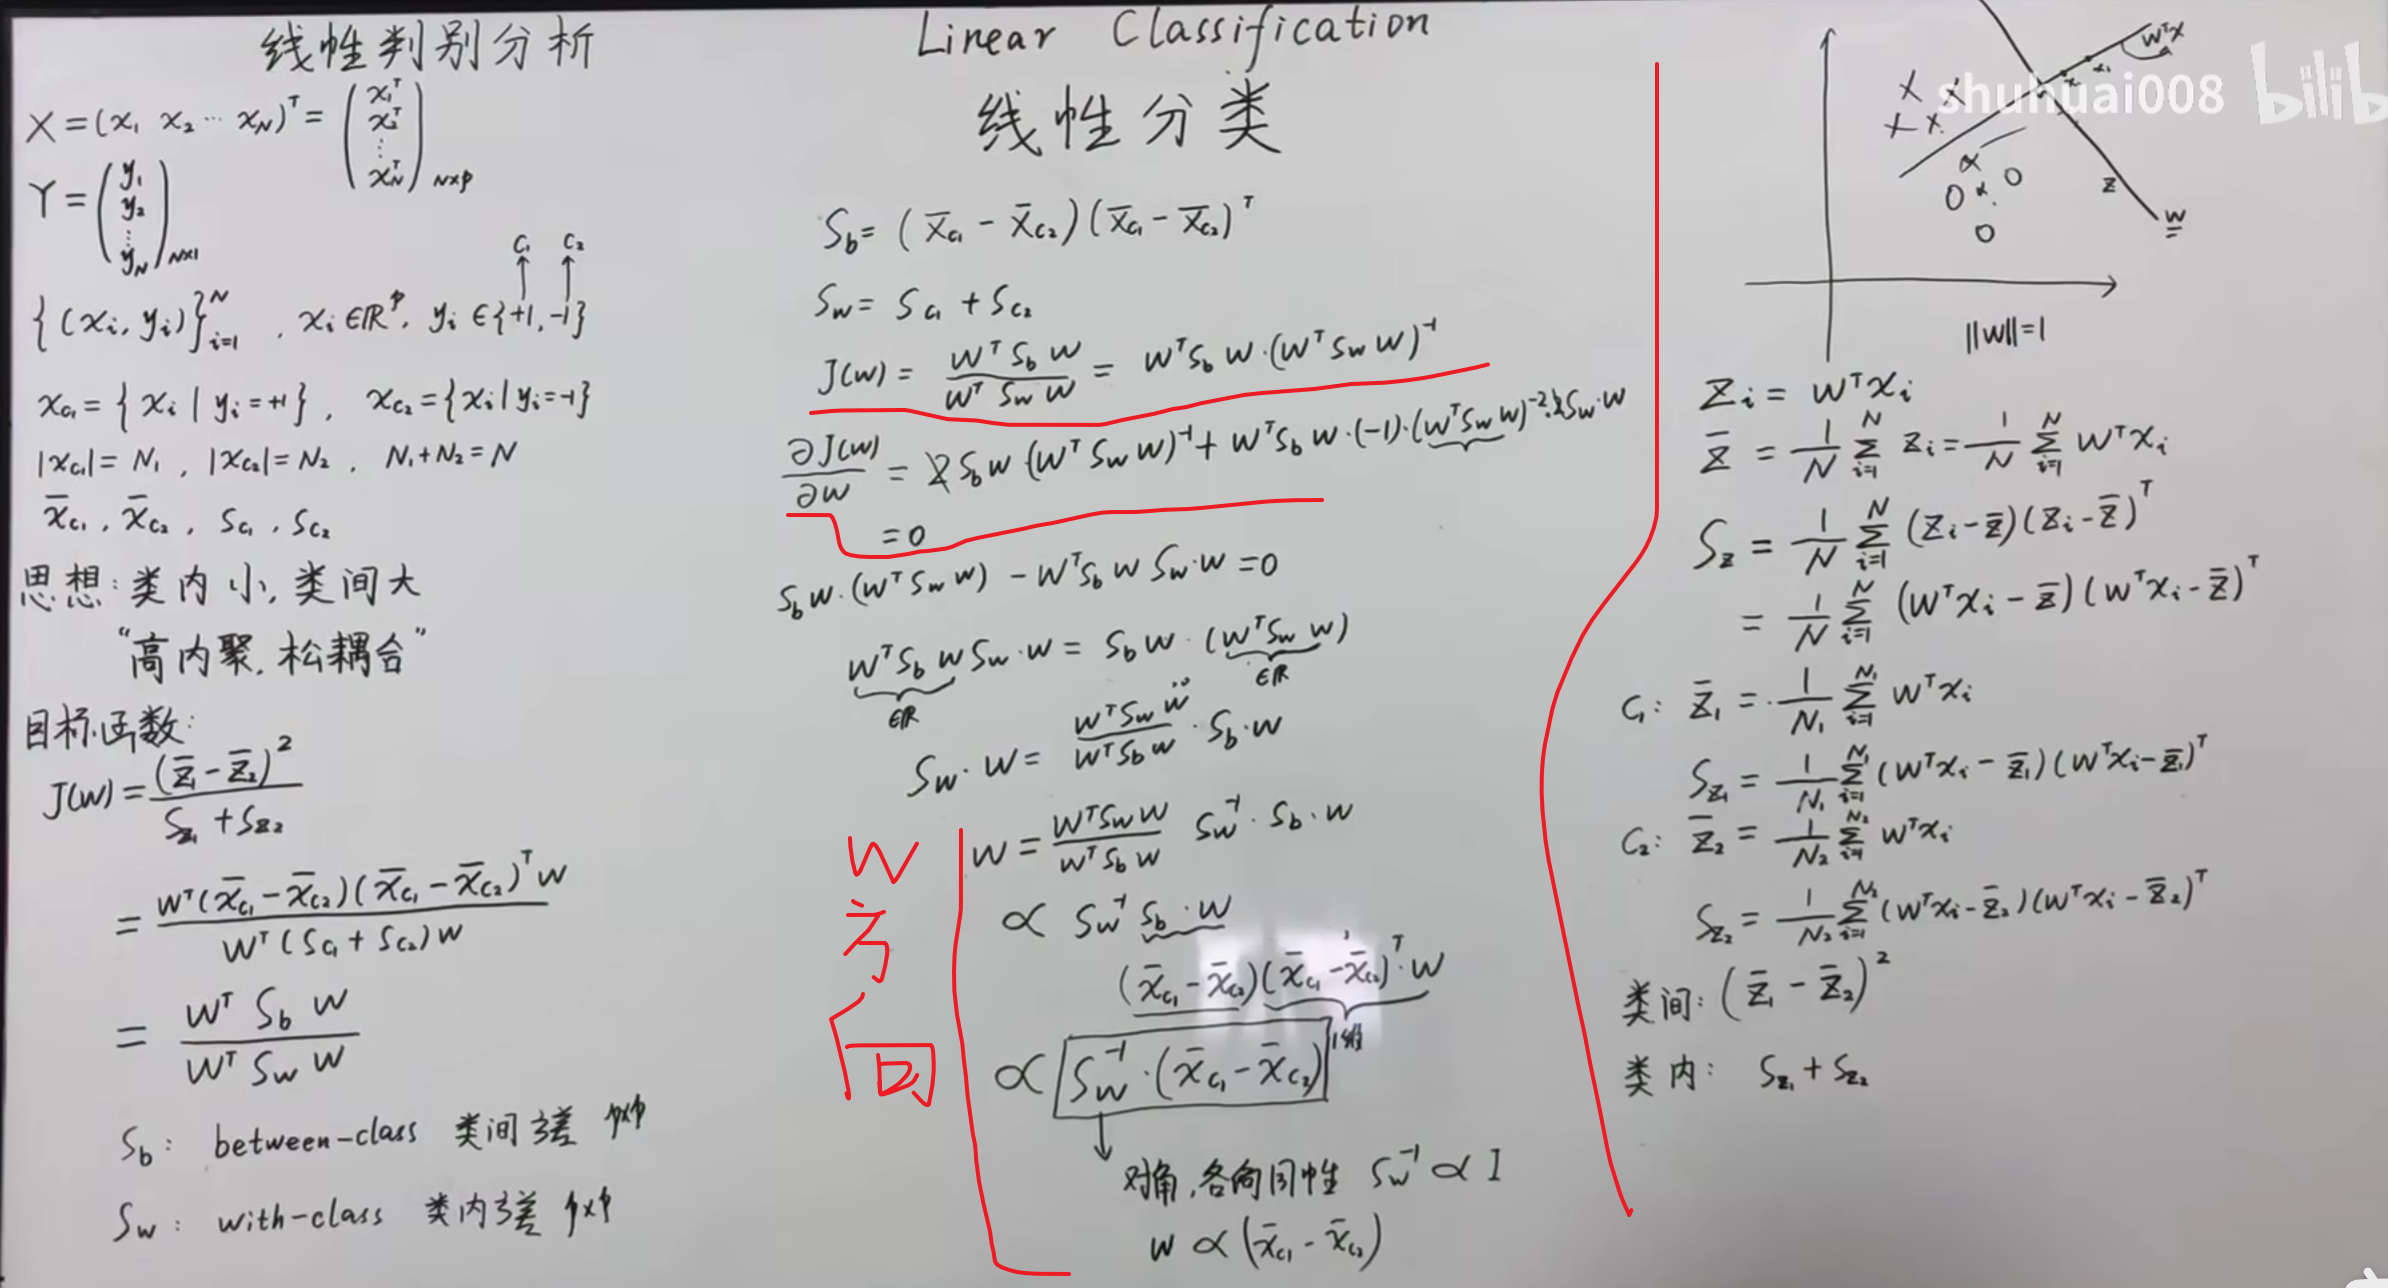 线性判别分析
X = (x₁ x₂ … x_N)ᵀ = (x₁ᵀ x₂ᵀ ⋮ x_Nᵀ)_{N×p}
Y = (y₁ y₂ ⋮ y_N)_{N×1}
C₁ C₂
{(xᵢ, yᵢ)}ᵢ₌₁ᴺ , xᵢ ∈ ℝᵖ, yᵢ ∈ {+1, -1}
x_{C₁} = {xᵢ | yᵢ = +1}, x_{C₂} = {xᵢ | yᵢ = -1}
|x_{C₁}| = N₁, |x_{C₂}| = N₂, N₁+N₂ = N
x̄_{C₁}, x̄_{C₂}, S_{C₁}, S_{C₂}
思想: 类内小, 类间大
“高内聚, 松耦合”
目标函数:
J(w) = (z̄₁ - z̄₂)² / (S_{z₁} + S_{z₂})
= wᵀ(x̄_{C₁} - x̄_{C₂})(x̄_{C₁} - x̄_{C₂})ᵀw / wᵀ(S_{C₁} + S_{C₂})w
= wᵀ S_b w / wᵀ S_w w
S_b: between-class 类间方差 p×p
S_w: with-class 类内方差 p×p
Linear Classification
线性分类
S_b = (x̄_{C₁} - x̄_{C₂})(x̄_{C₁} - x̄_{C₂})ᵀ
S_w = S_{C₁} + S_{C₂}
J(w) = wᵀ S_b w / wᵀ S_w w = wᵀS_b w·(wᵀS_w w)⁻¹
∂J(w)/∂w = 2 S_b w (wᵀ S_w w)⁻¹ + wᵀS_b w·(-1)·(wᵀS_w w)⁻²·2 S_w·w
= 0
S_b w·(wᵀS_w w) - wᵀS_b w S_w·w = 0
wᵀS_b w S_w·w = S_b w·(wᵀS_w w)
∈ℝ ∈ℝ
S_w·w = wᵀS_w w / wᵀS_b w · S_b·w
w = wᵀS_w w / wᵀS_b w S_w⁻¹·S_b·w
∝ S_w⁻¹ S_b·w
(x̄_{C₁} - x̄_{C₂})(x̄_{C₁} - x̄_{C₂})ᵀ·w
1维
∝ S_w⁻¹·(x̄_{C₁} - x̄_{C₂})
对角, 各向同性 S_w⁻¹ ∝ I
w ∝ (x̄_{C₁} - x̄_{C₂})
W
方
向
shuhuai008
bilib
wᵀx
x₁
z
w
‖w‖=1
zᵢ = wᵀxᵢ
z̄ = 1/N Σᵢ₌₁ᴺ zᵢ = 1/N Σᵢ₌₁ᴺ wᵀxᵢ
S_z = 1/N Σᵢ₌₁ᴺ (zᵢ - z̄)(zᵢ - z̄)ᵀ
= 1/N Σᵢ₌₁ᴺ (wᵀxᵢ - z̄)(wᵀxᵢ - z̄)ᵀ
C₁: z̄₁ = 1/N₁ Σᵢ₌₁^{N₁} wᵀxᵢ
S_{z₁} = 1/N₁ Σᵢ₌₁^{N₁} (wᵀxᵢ - z̄₁)(wᵀxᵢ - z̄₁)ᵀ
C₂: z̄₂ = 1/N₂ Σᵢ₌₁^{N₂} wᵀxᵢ
S_{z₂} = 1/N₂ Σᵢ₌₁^{N₂} (wᵀxᵢ - z̄₂)(wᵀxᵢ - z̄₂)ᵀ
类间: (z̄₁ - z̄₂)²
类内: S_{z₁} + S_{z₂}